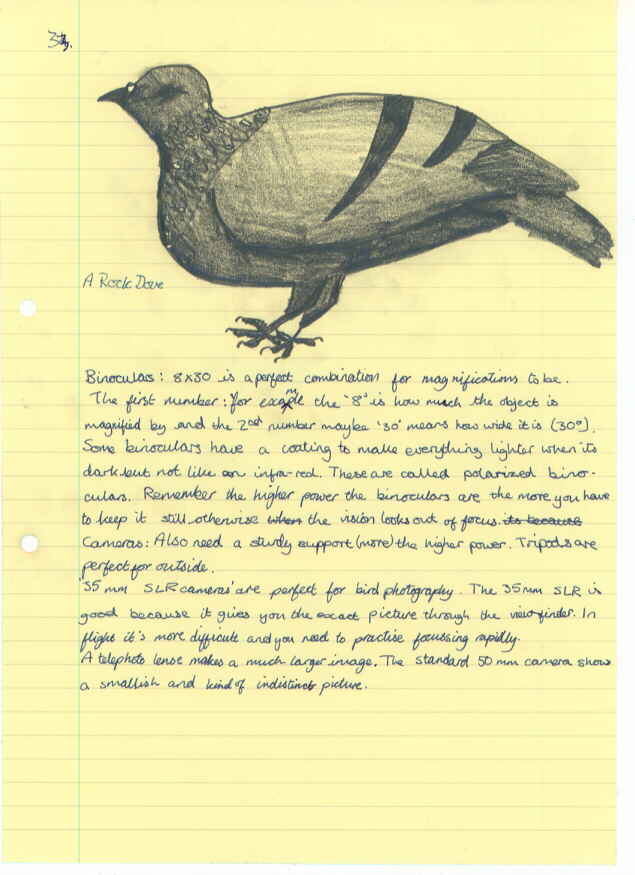 A Rock Dove
Binoculars: 8x30 is a perfect combination for magnifications to be.
The first number: for example the '8' is how much the object is
magnified by and the 2nd number maybe '30' means how wide it is (30°).
Some binoculars have a coating to make everything lighter when its
dark but not like an infra-red. These are called polarized bino-
culars. Remember the higher power the binoculars are the more you have
to keep it still otherwise when the vision looks out of focus. its because
Cameras: Also need a sturdy support (more) the higher power. Tripods are
perfect for outside.
'35 mm SLR cameras' are perfect for bird photography. The 35mm SLR is
good because it gives you the exact picture through the viewfinder. In
flight it's more difficult and you need to practise focussing rapidly.
A telephoto lense makes a much larger image. The standard 50 mm camera show
a smallish and kind of indistinct picture.